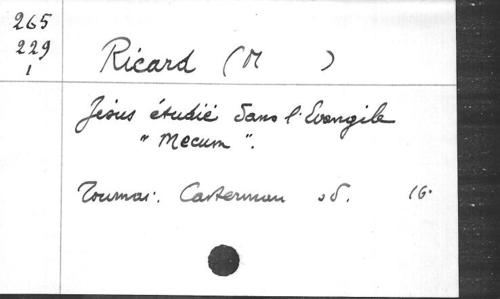 265
229
1
Ricard (M )
Jésus étudié dans l'Evangile
" Mecum ".
Tournai. Casterman sd. 16.